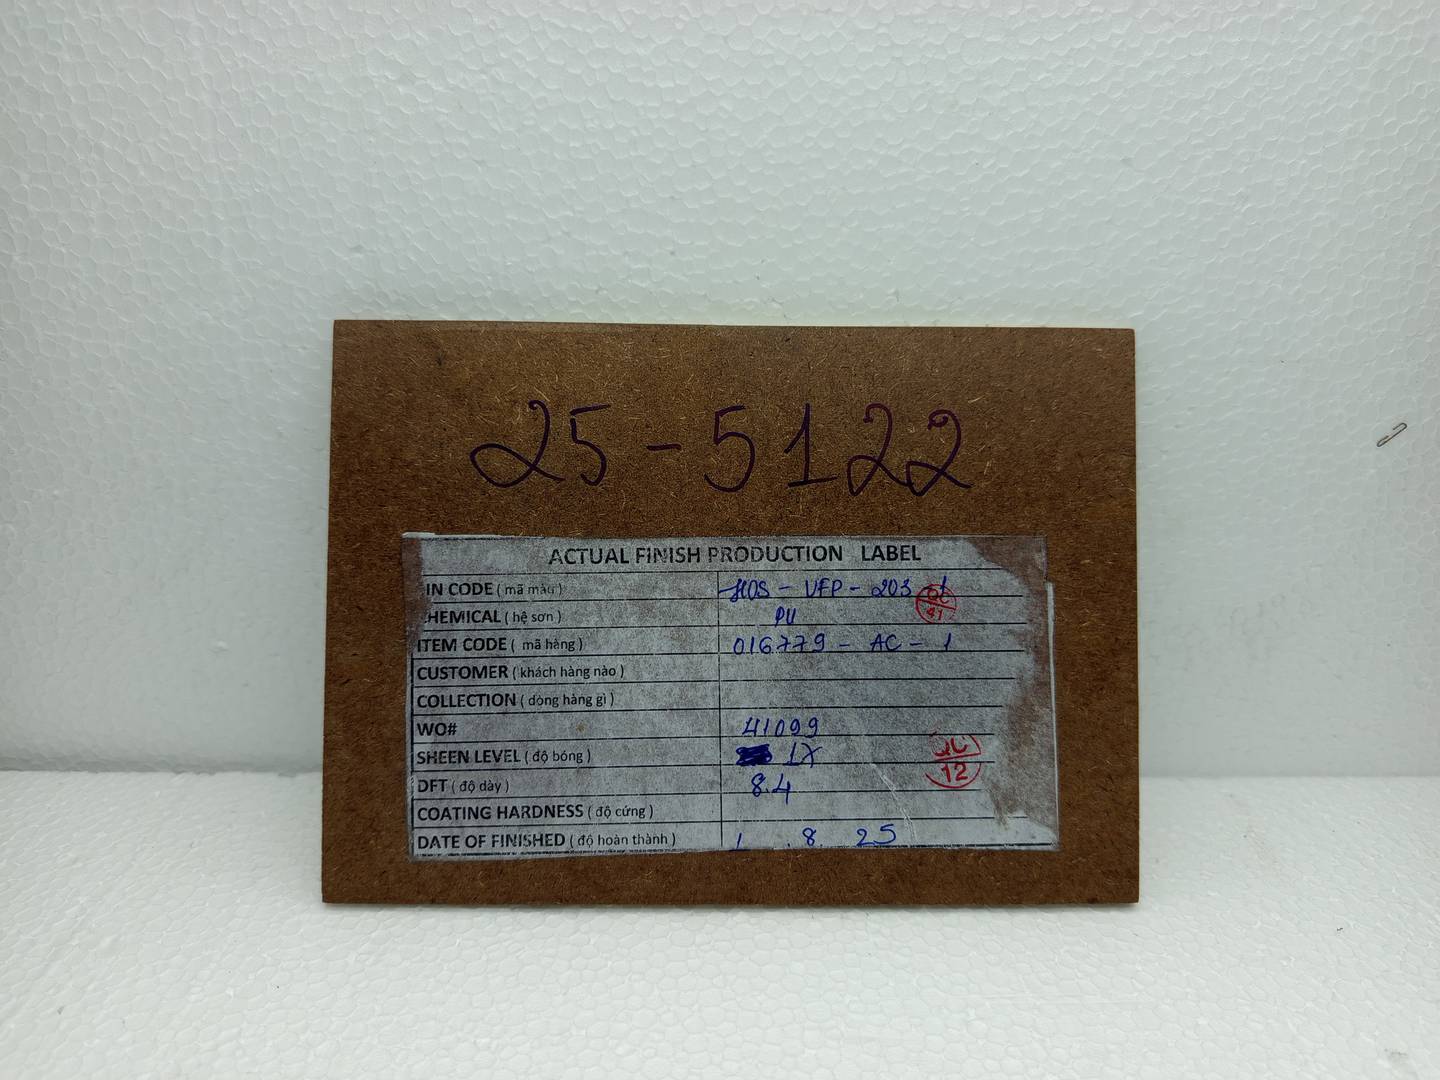 25-5122
ACTUAL FINISH PRODUCTION LABEL
IN CODE ( mã màu ) HOS - VFP - 203 1
HEMICAL ( hệ sơn ) PU
ITEM CODE ( mã hàng ) 016779 - AC - 1
CUSTOMER ( khách hàng nào )
COLLECTION ( dòng hàng gì )
WO# 41099
SHEEN LEVEL ( độ bóng )
DFT ( độ dày ) 8.4
COATING HARDNESS ( độ cứng )
DATE OF FINISHED ( độ hoàn thành ) 1 . 8 . 25
QC
41
QC
12